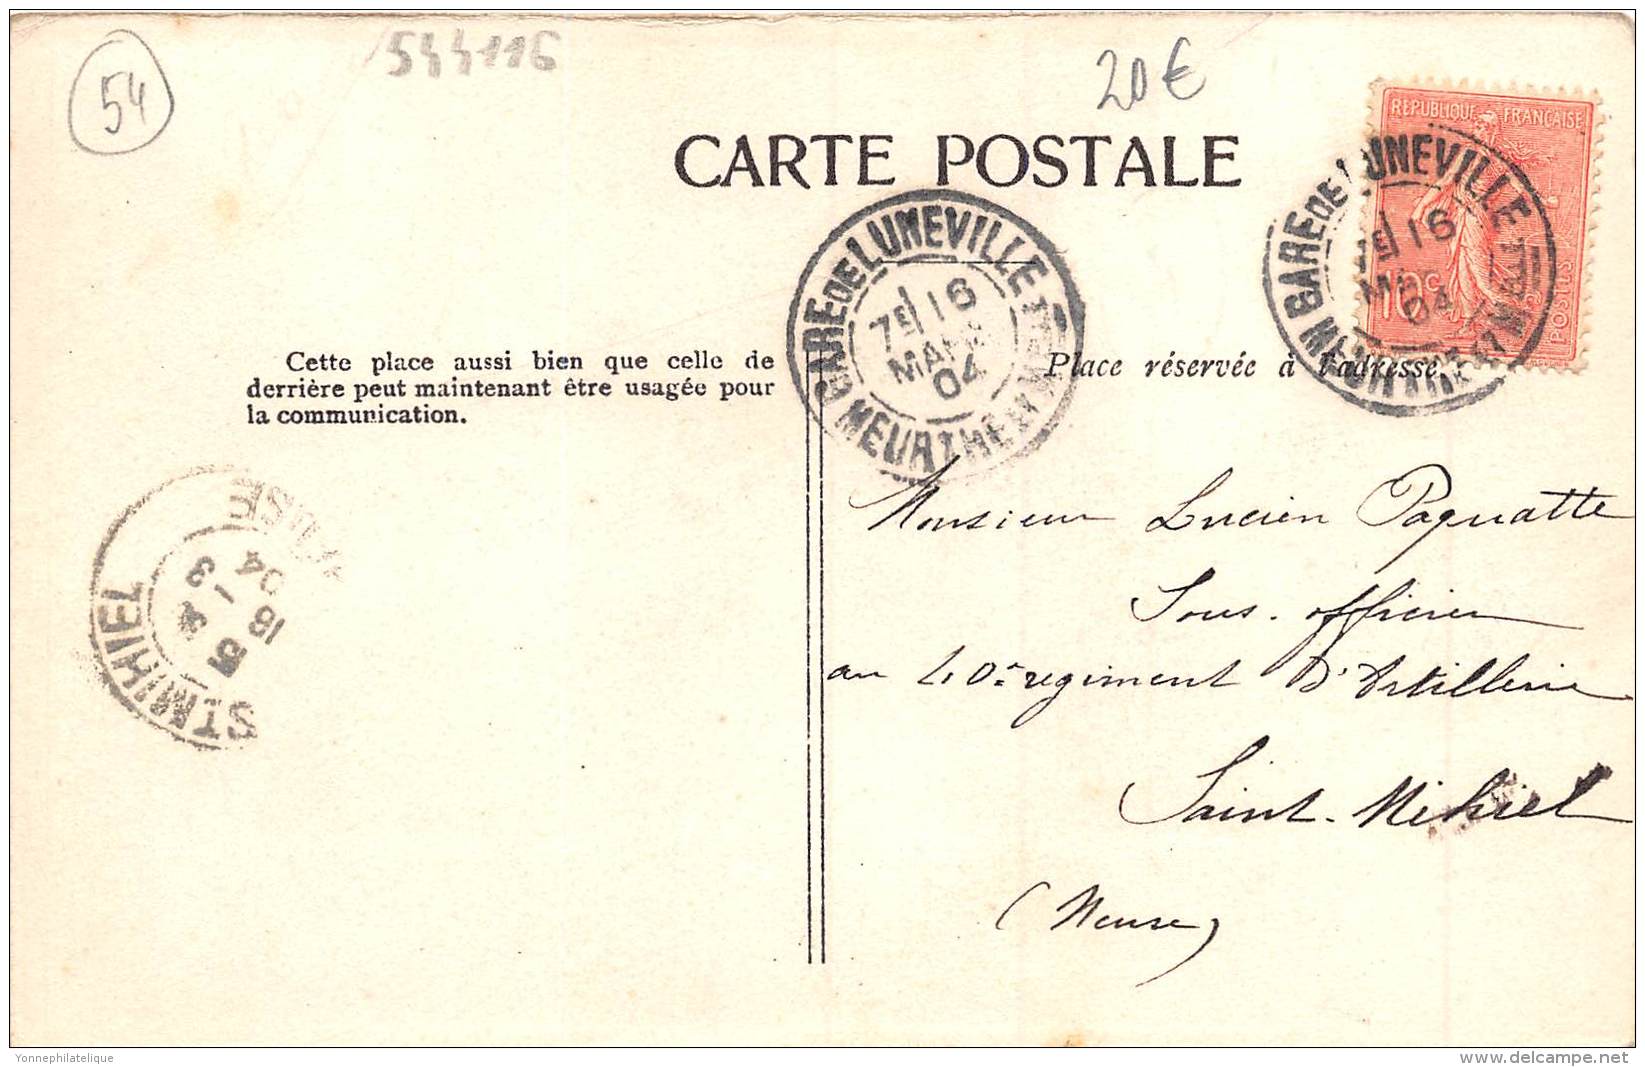 54
544116
20€
CARTE POSTALE
REPUBLIQUE FRANÇAISE
10c
POSTES
GARE DE LUNEVILLE
7E 16
MARS
04
MEURTHE ET M
GARE DE LUNEVILLE
7E 16
04
Cette place aussi bien que celle de
derrière peut maintenant être usagée pour
la communication.
Place réservée à l'adresse.
ST MIHIEL
16 - 3
04
MEUSE
Monsieur Lucien Paquatte
Sous-officier
au 40e régiment d'Artillerie
Saint-Mihiel
(Meuse)
Yonnephilatelique
www.delcampe.net